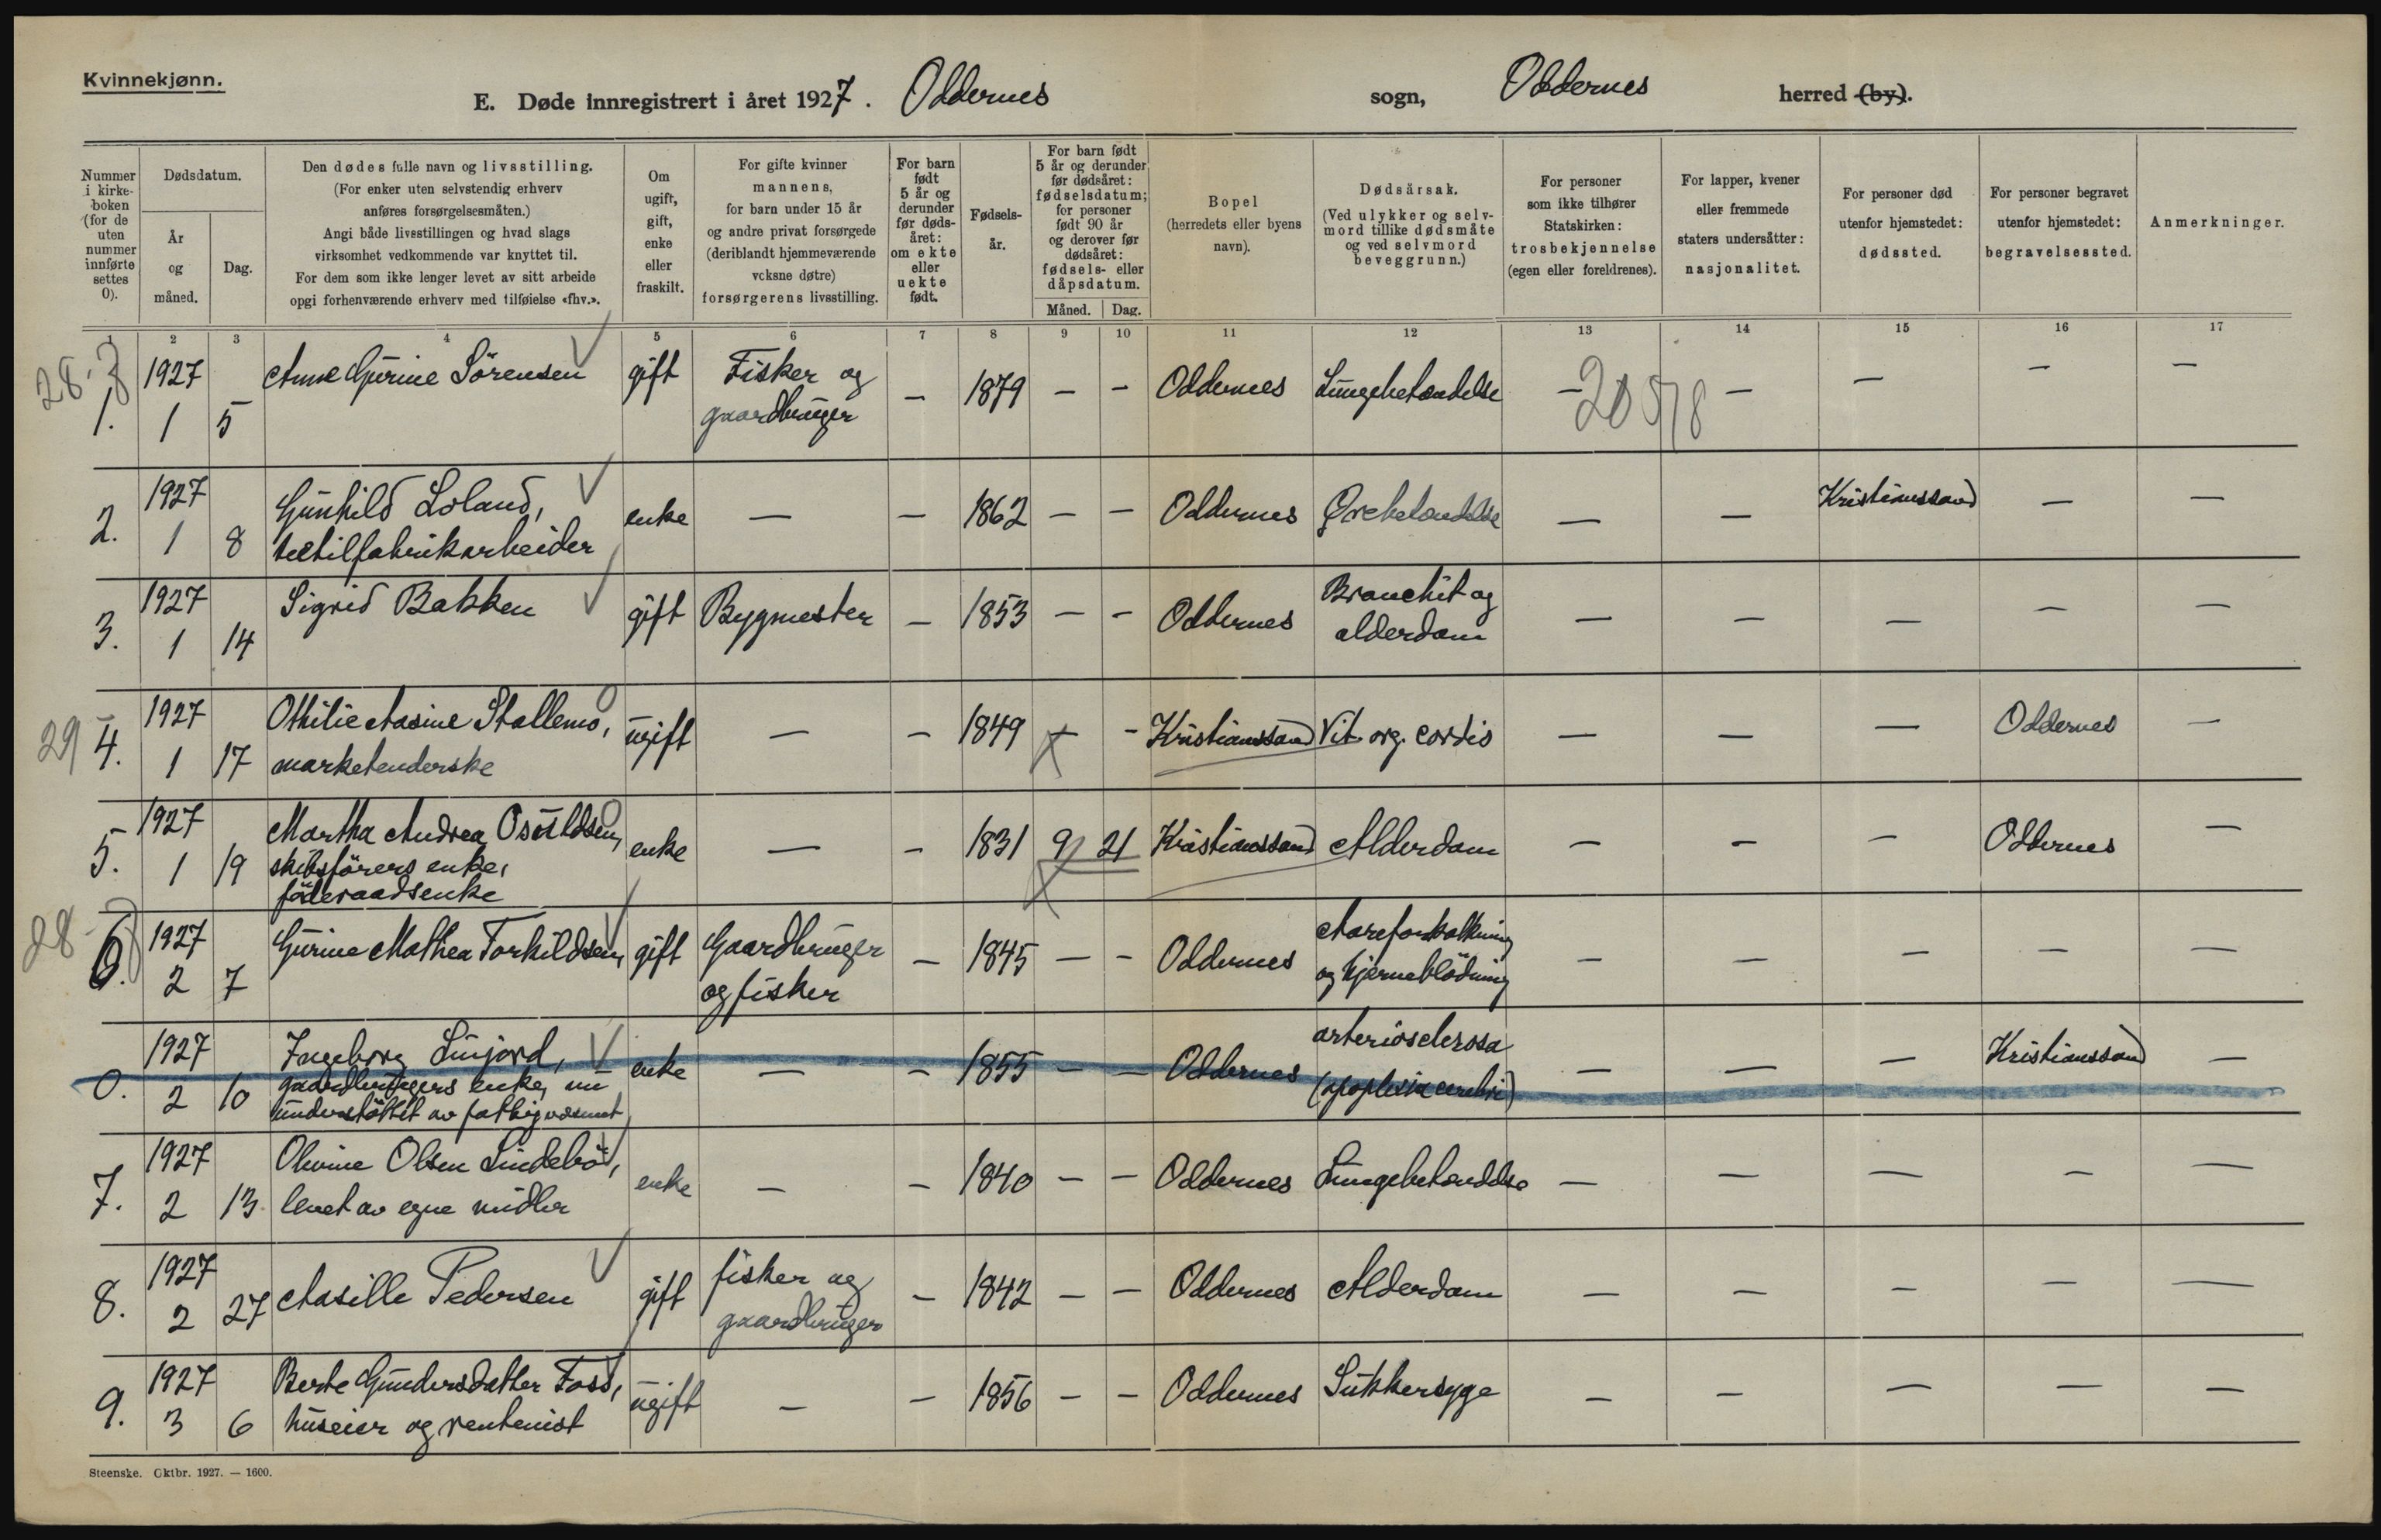 Kvinnekjønn.
E. Døde innregistrert i året 1927. Oddernes sogn, Oddernes herred (by).
Nummer i kirkeboken (for de uten nummer innførte settes 0).
Dødsdatum.
År og måned.
Dag.
Den dødes fulle navn og livsstilling.
(For enker uten selvstendig erhverv
anføres forsørgelsesmåten.)
Angi både livsstillingen og hvad slags
virksomhet vedkommende var knyttet til.
For dem som ikke lenger levet av sitt arbeide
opgi forhenværende erhverv med tilføielse «fhv.».
Om ugift, gift, enke eller fraskilt.
For gifte kvinner
mannens,
for barn under 15 år
og andre privat forsørgede
(deriblandt hjemmeværende
voksne døtre)
forsørgerens livsstilling.
For barn født 5 år og derunder før dødsåret: om ekte eller uekte født.
Fødselsår.
For barn født
5 år og derunder
før dødsåret:
fødselsdatum;
for personer
født 90 år
og derover før
dødsåret:
fødsels- eller
dåpsdatum.
Måned. Dag.
Bopel
(herredets eller byens
navn).
Dødsårsak.
(Ved ulykker og selv-
mord tillike dødsmåte
og ved selvmord
beveggrunn.)
For personer
som ikke tilhører
Statskirken:
trosbekjennelse
(egen eller foreldrenes).
For lapper, kvener
eller fremmede
staters undersåtter:
nasjonalitet.
For personer død
utenfor hjemstedet:
dødssted.
For personer begravet
utenfor hjemstedet:
begravelsessted.
Anmerkninger.
1 2 3 4 5 6 7 8 9 10 11 12 13 14 15 16 17
28.
1. 1927 1 5 Anne Gurine Sörensen gift Fisker og gaardbruger – 1879 – – Oddernes Lungebetændelse – 2057/8 – – – –
2. 1927 1 8 Gunhild Loland, textilfabrikarbeider enke – – 1862 – – Oddernes Ørebetændelse – – Kristianssand – –
3. 1927 1 14 Sigrid Bakken gift Bygmester – 1853 – – Oddernes Bronchit og alderdom – – – – –
29
4. 1927 1 17 Othilie Aasine Stallemo, marketenderske ugift – – 1849 – – Kristianssand Vit. org. cordis – – – Oddernes –
5. 1927 1 19 Martha Andrea Osuldsen, skibsförers enke, föderaadsenke enke – – 1831 9 21 Kristianssand Alderdom – – – Oddernes –
28
6. 1927 2 7 Gurine Mathea Torkildsen, gift Gaardbruger og fisker – 1845 – – Oddernes Aareforkalkning og hjerneblödning – – – – –
0. 1927 2 10 Ingeborg Linjord, gaardbrugers enke, nu understöttet av fattigvæsenet enke – – 1855 – – Oddernes arteriosclerosa (apoplexia cerebri) – – – Kristianssand –
7. 1927 2 13 Olivine Olsen Lindebö, levet av egne midler enke – – 1840 – – Oddernes Lungebetændelse – – – – –
8. 1927 2 27 Aasille Pedersen gift fisker og gaardbruger – 1842 – – Oddernes Alderdom – – – – –
9. 1927 3 6 Berte Gundersdatter Foss, huseier og rentenist ugift – – 1856 – – Oddernes Sukkersyge – – – – –
Steenske. Oktbr. 1927. — 1600.